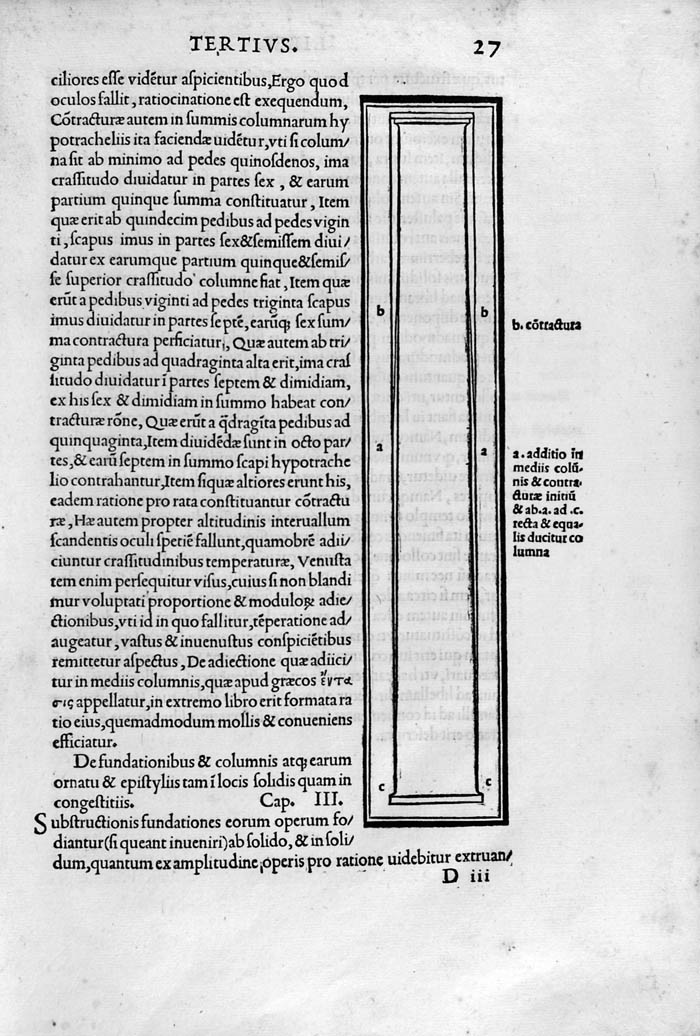 TERTIVS. 27
ciliores eſſe vidẽtur aſpicientibus, Ergo quod
oculos fallit, ratiocinatione eſt exequendum,
Cõtracturæ autem in ſummis columnarum hy
potracheliis ita faciendæ uidẽtur, vti ſi colum/
na ſit ab minimo ad pedes quinoſdenos, ima
craſſitudo diuidatur in partes ſex, & earum
partium quinque ſumma conſtituatur, Item
quæ erit ab quindecim pedibus ad pedes vigin
ti, ſcapus imus in partes ſex&ſemiſſem diui/
datur ex earumque partium quinque&ſemiſ/
ſe ſuperior craſſitudo columne fiat, Item quæ
erũt a pedibus viginti ad pedes triginta ſcapus
imus diuidatur in partes ſeptẽ, earũq; ſex ſum/
ma contractura perficiatur, Quæ autem ab tri/
ginta pedibus ad quadraginta alta erit, ima craſ
ſitudo diuidatur ĩ partes ſeptem & dimidiam,
ex his ſex & dimidiam in ſummo habeat con/
tracturæ rõne, Quæ erũt a q̃dragĩta pedibus ad
quinquaginta, Item diuidẽdæ ſunt in octo par/
tes, & earũ ſeptem in ſummo ſcapi hypotrache
lio contrahantur, Item ſiquæ altiores erunt his,
eadem ratione pro rata conſtituantur cõtractu
ræ, Hæ autem propter altitudinis interuallum
ſcandentis oculi ſpeciẽ fallunt, quamobrẽ adii/
ciuntur craſſitudinibus temperaturæ, Venuſta
tem enim perſequitur viſus, cuius ſi non blandi
mur voluptati proportione & moduloꝝ adie/
ctionibus, vti id in quo fallitur, tẽperatione ad/
augeatur, vaſtus & inuenuſtus conſpiciẽtibus
remittetur aſpectus, De adiectione quæ adiici/
tur in mediis columnis, quæ apud græcos ἔντα
σις appellatur, in extremo libro erit formata ra
tio eius, quemadmodum mollis & conueniens
efficiatur.
De fundationibus & columnis atq; earum
ornatu & epiſtyliis tam ĩ locis ſolidis quam in
congeſtitiis. Cap. III.
Subſtructionis fundationes eorum operum fo/
diantur(ſi queant inueniri)ab ſolido, & in ſoli/
dum, quantum ex amplitudine operis pro ratione uidebitur extruan/
D iii
b b
a a
c c
b. cõtractura
a. additio in
mediis colũ-
nis & contra-
cturæ initiũ
& ab .a. ad .c.
recta & equa-
lis ducitur co
lumna